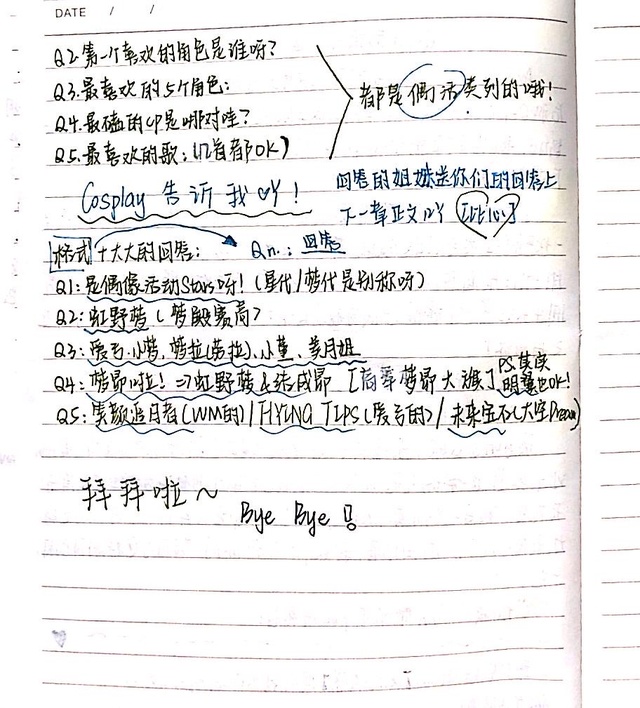 DATE / /
Q2.第一个喜欢的角色是谁呀?
Q3.最喜欢的5个角色:
Q4.最磕的cp是哪对哇?
Q5.最喜欢的歌:(几首都OK)
都是偶活类列的哦!
Cosplay 告诉我吖!
回答的姐妹送你们的回答上
下一章正文吖
格式+大大的回答:
Qn.: 回答
Q1:是偶像活动Stars呀!(星代/梦代是别称呀)
Q2:虹野梦(梦殿赛高)
Q3:爱弓、小梦、梦拉(劳拉)、小堇、美月姐
Q4:梦昴啦!=>虹野梦&结成昴
PS 其实
明堇也OK!
Q5:笑颜追月者(WM的)/FLYING TIPS(爱弓的)/未来宝石(大空Dream)
拜拜啦~
Bye Bye!